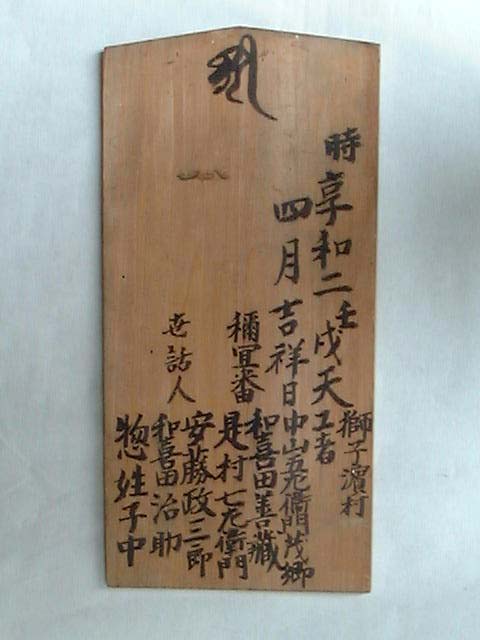 時享和二壬戌天
四月吉祥日
工者
獅子濱村
中山五左衛門茂郷
禰冝番
和喜田善藏
是村七左衛門
世話人
安藤政三郎
和喜田治助
惣姓子中